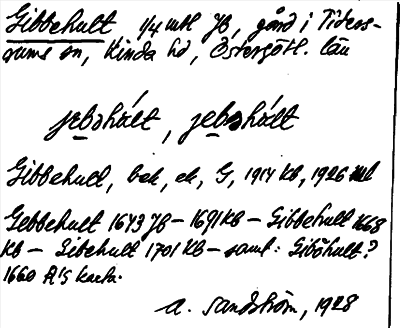 Gibbehult, 1/4 mtl JB, gård i Tiders-
rums sn, Kinda hd, Östergötl. län
jebəhúlt, jebəhúlt
Gibbehult, bek, ek, G, 1914 KB, 1926 ml
Gebbehult 1643 JB – 1691 KB – Gibbehult 1668
KB – Gibehult 1701 KB – saml: Giböhult?
1660 karta.
A. Sandström, 1928